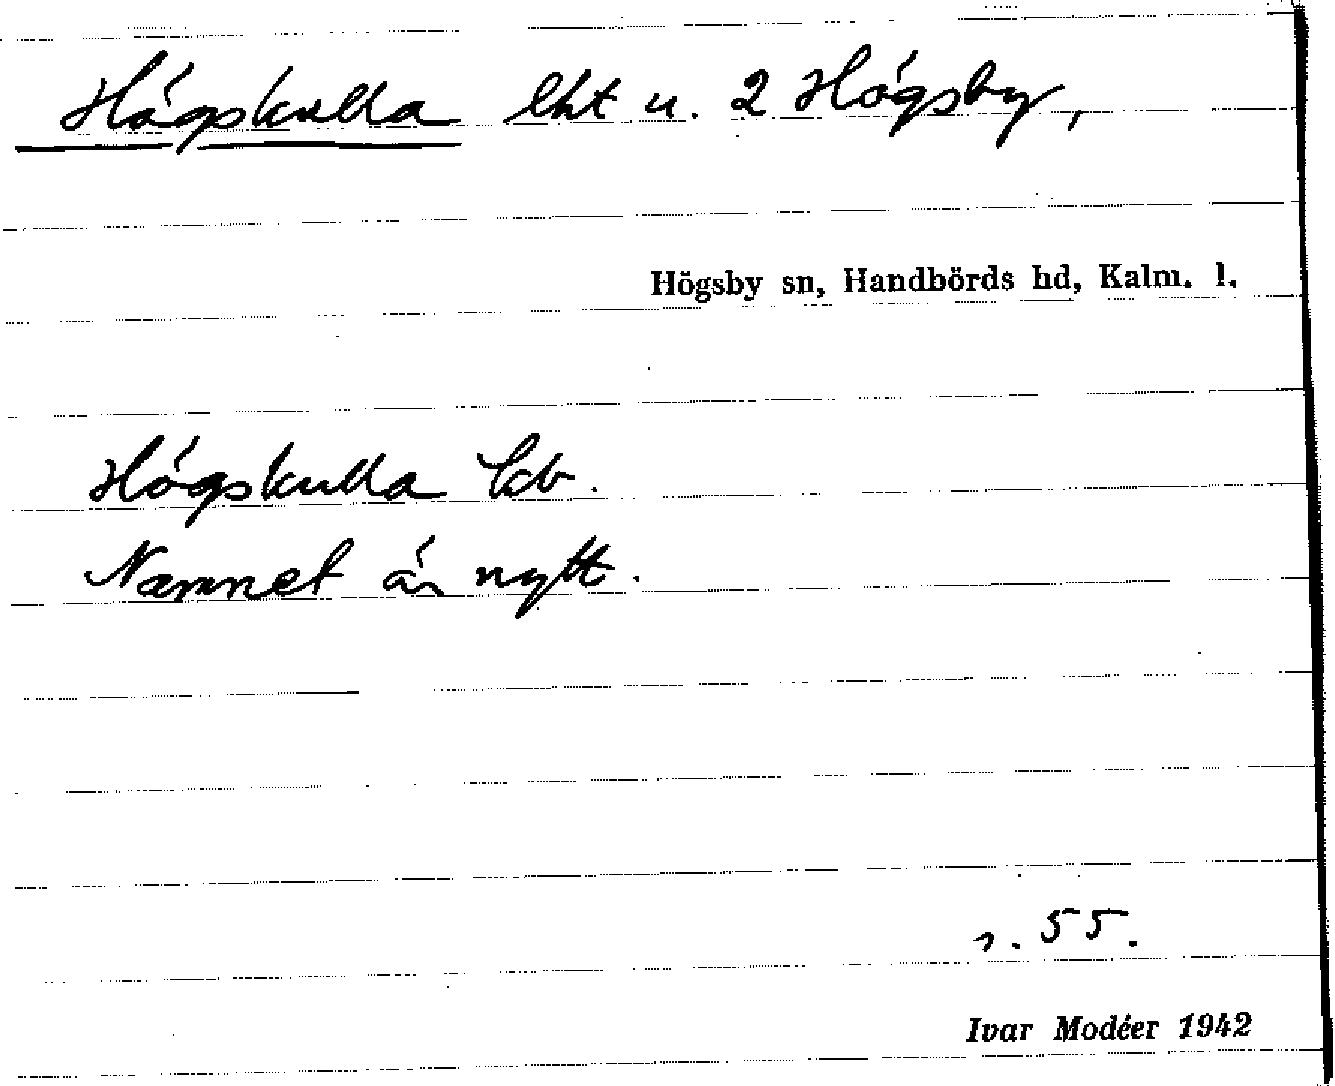 Högskulla lht u. 2 Högsby,
Högsby sn, Handbörds hd, Kalm. l.
Högskulla kb.
Namnet är nytt.
s. 55.
Ivar Modéer 1942